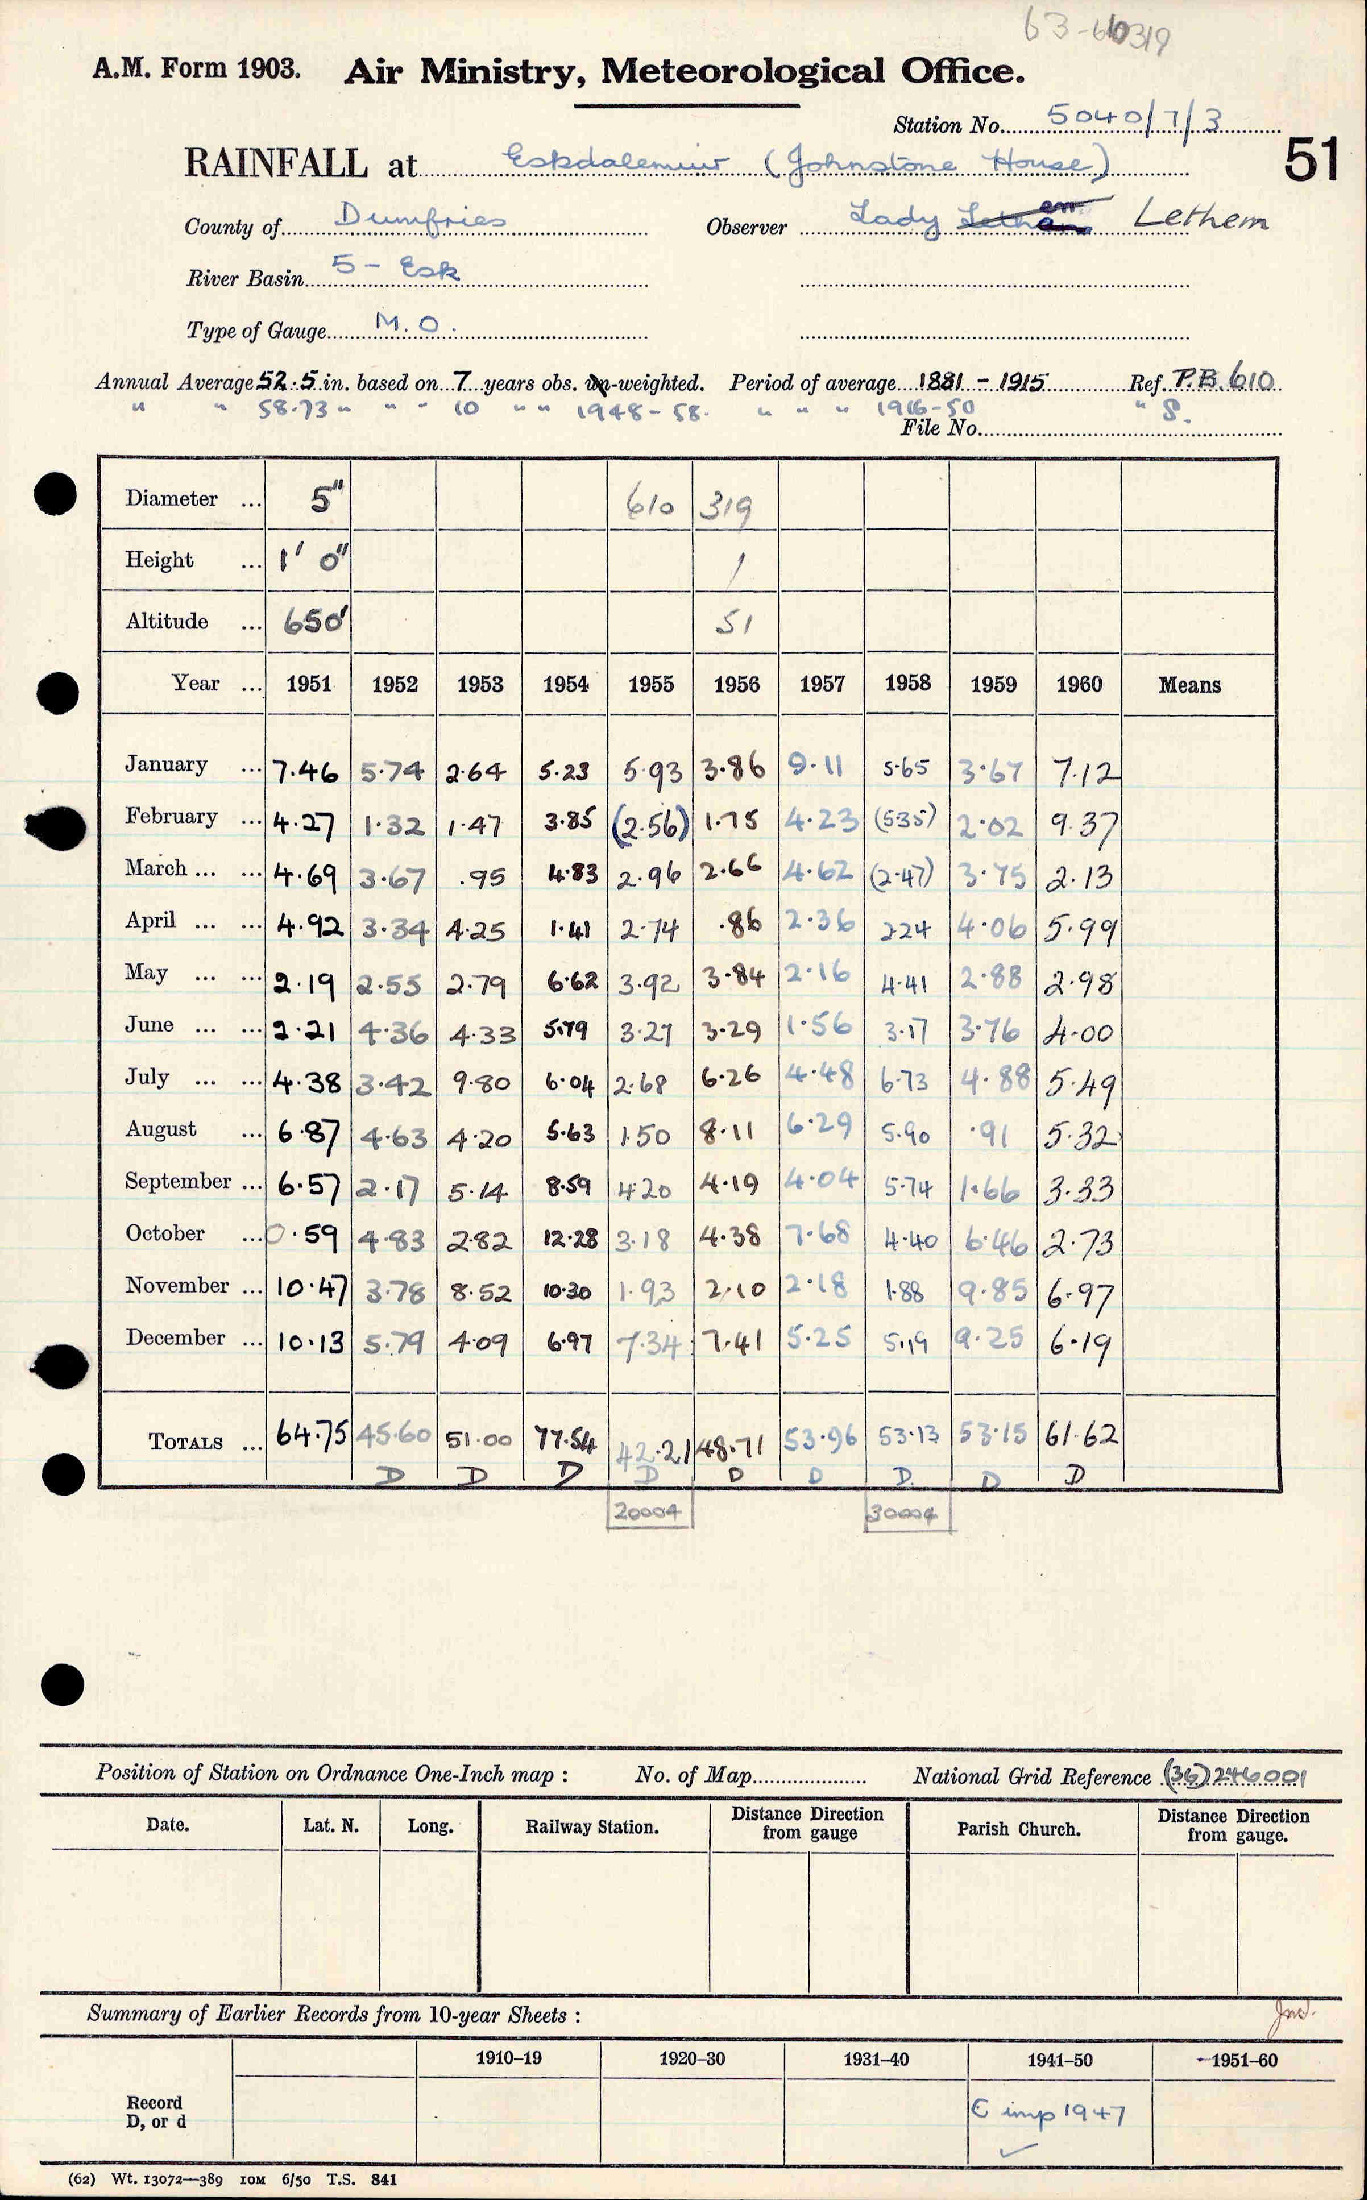 63-610319
A.M. Form 1903. Air Ministry, Meteorological Office.
Station No. 5040/7/3
RAINFALL at Eskdalemuir (Johnstone House) 51
County of Dumfries Observer Lady Lethem
River Basin 5 - Esk
Type of Gauge M.O.
Annual Average 52.5 in. based on 7 years obs. un-weighted. Period of average 1881 - 1915 Ref. P.B. 610
" " 58.73 " " " 10 " " 1948-58. " " " 1916-50 " 8.
File No.
Diameter ... 5" 610 319
Height ... 1' 0" 1
Altitude ... 650' 51
Year ... 1951 1952 1953 1954 1955 1956 1957 1958 1959 1960 Means
January ... 7.46 5.74 2.64 5.23 5.93 3.86 9.11 5.65 3.67 7.12
February ... 4.27 1.32 1.47 3.85 (2.56) 1.75 4.23 (5.35) 2.02 9.37
March ... ... 4.69 3.67 .95 4.83 2.96 2.66 4.62 (2.47) 3.75 2.13
April ... ... 4.92 3.34 4.25 1.41 2.74 .86 2.36 2.24 4.06 5.99
May ... ... 2.19 2.55 2.79 6.62 3.92 3.84 2.16 4.41 2.88 2.98
June ... ... 2.21 4.36 4.33 5.79 3.27 3.29 1.56 3.17 3.76 4.00
July ... ... 4.38 3.42 9.80 6.04 2.68 6.26 4.48 6.73 4.88 5.49
August ... 6.87 4.63 4.20 5.63 1.50 8.11 6.29 5.90 .91 5.32
September ... 6.57 2.17 5.14 8.59 4.20 4.19 4.04 5.74 1.66 3.33
October ... 0.59 4.83 2.82 12.28 3.18 4.38 7.68 4.40 6.46 2.73
November ... 10.47 3.78 8.52 10.30 1.93 2.10 2.18 1.88 9.85 6.97
December ... 10.13 5.79 4.09 6.97 7.34 7.41 5.25 5.19 9.25 6.19
TOTALS ... 64.75 45.60 51.00 77.54 42.21 48.71 53.96 53.13 53.15 61.62
D D D D D D D. D D
20004 30004
Position of Station on Ordnance One-Inch map : No. of Map National Grid Reference (36) 246001
Date. Lat. N. Long. Railway Station. Distance Direction from gauge Parish Church. Distance Direction from gauge.
Summary of Earlier Records from 10-year Sheets :
1910-19 1920-30 1931-40 1941-50 1951-60
Record
D, or d
E imp 1947
(62) Wt. 13072—389 10M 6/50 T.S. 841